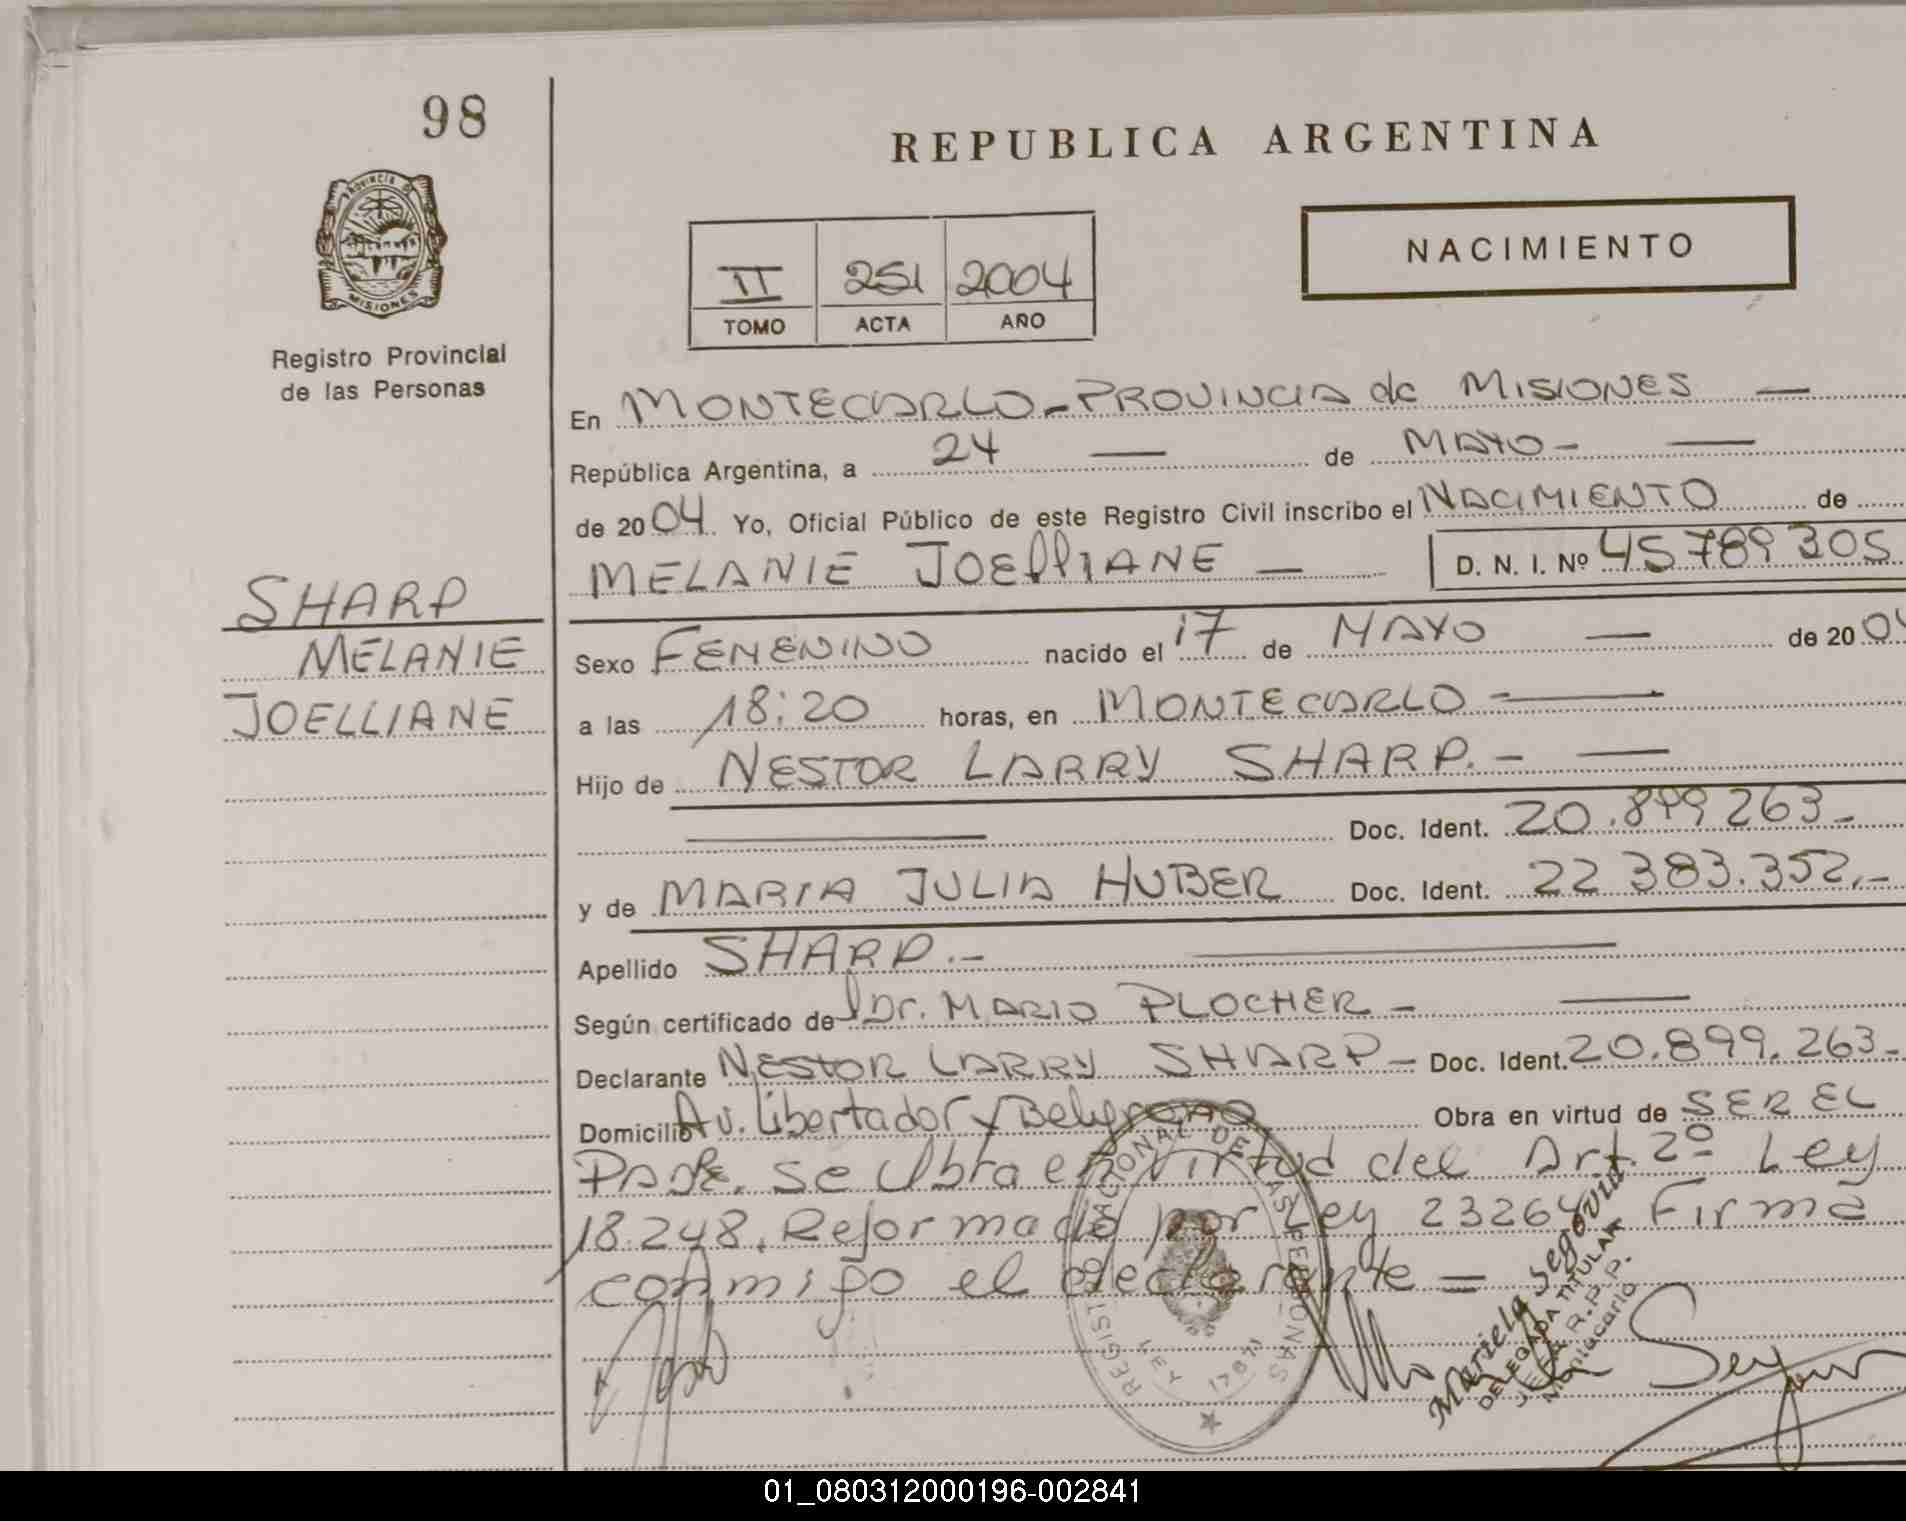 98
REPUBLICA ARGENTINA
PROVINCIA DE MISIONES
Registro Provincial
de las Personas
II 251 2004
TOMO ACTA AÑO
NACIMIENTO
En MONTECARLO - PROVINCIA de MISIONES —
República Argentina, a 24 — de MAYO - —
de 2004. Yo, Oficial Público de este Registro Civil inscribo el NACIMIENTO de
MELANIE JOElliANE — D. N. I. Nº 45789305
SHARP
MELANIE
JOELLIANE
Sexo FEMENINO nacido el 17 de MAYO — de 2004
a las 18:20 horas, en MONTECARLO —
Hijo de NESTOR LARRY SHARP. - —
— Doc. Ident. 20.899263 -
y de MARIA JULIA HUBER Doc. Ident. 22 383.352.-
Apellido SHARP.- —
Según certificado del Dr. MARIO PLOCHER - —
Declarante NESTOR LARRY SHARP - Doc. Ident. 20.899.263-
Domicilio Av. Libertador y Belgrano Obra en virtud de SER EL
PADRE. se Obra en virtud del Art. 2º Ley
18.248. Reformada por Ley 23264 Firma
conmigo el declarante =
REGISTRO NACIONAL DE LAS PERSONAS
LEY 17671
Mariela Segovia
DELEGADA TITULAR
R.P.P.
Montecarlo
01_080312000196-002841